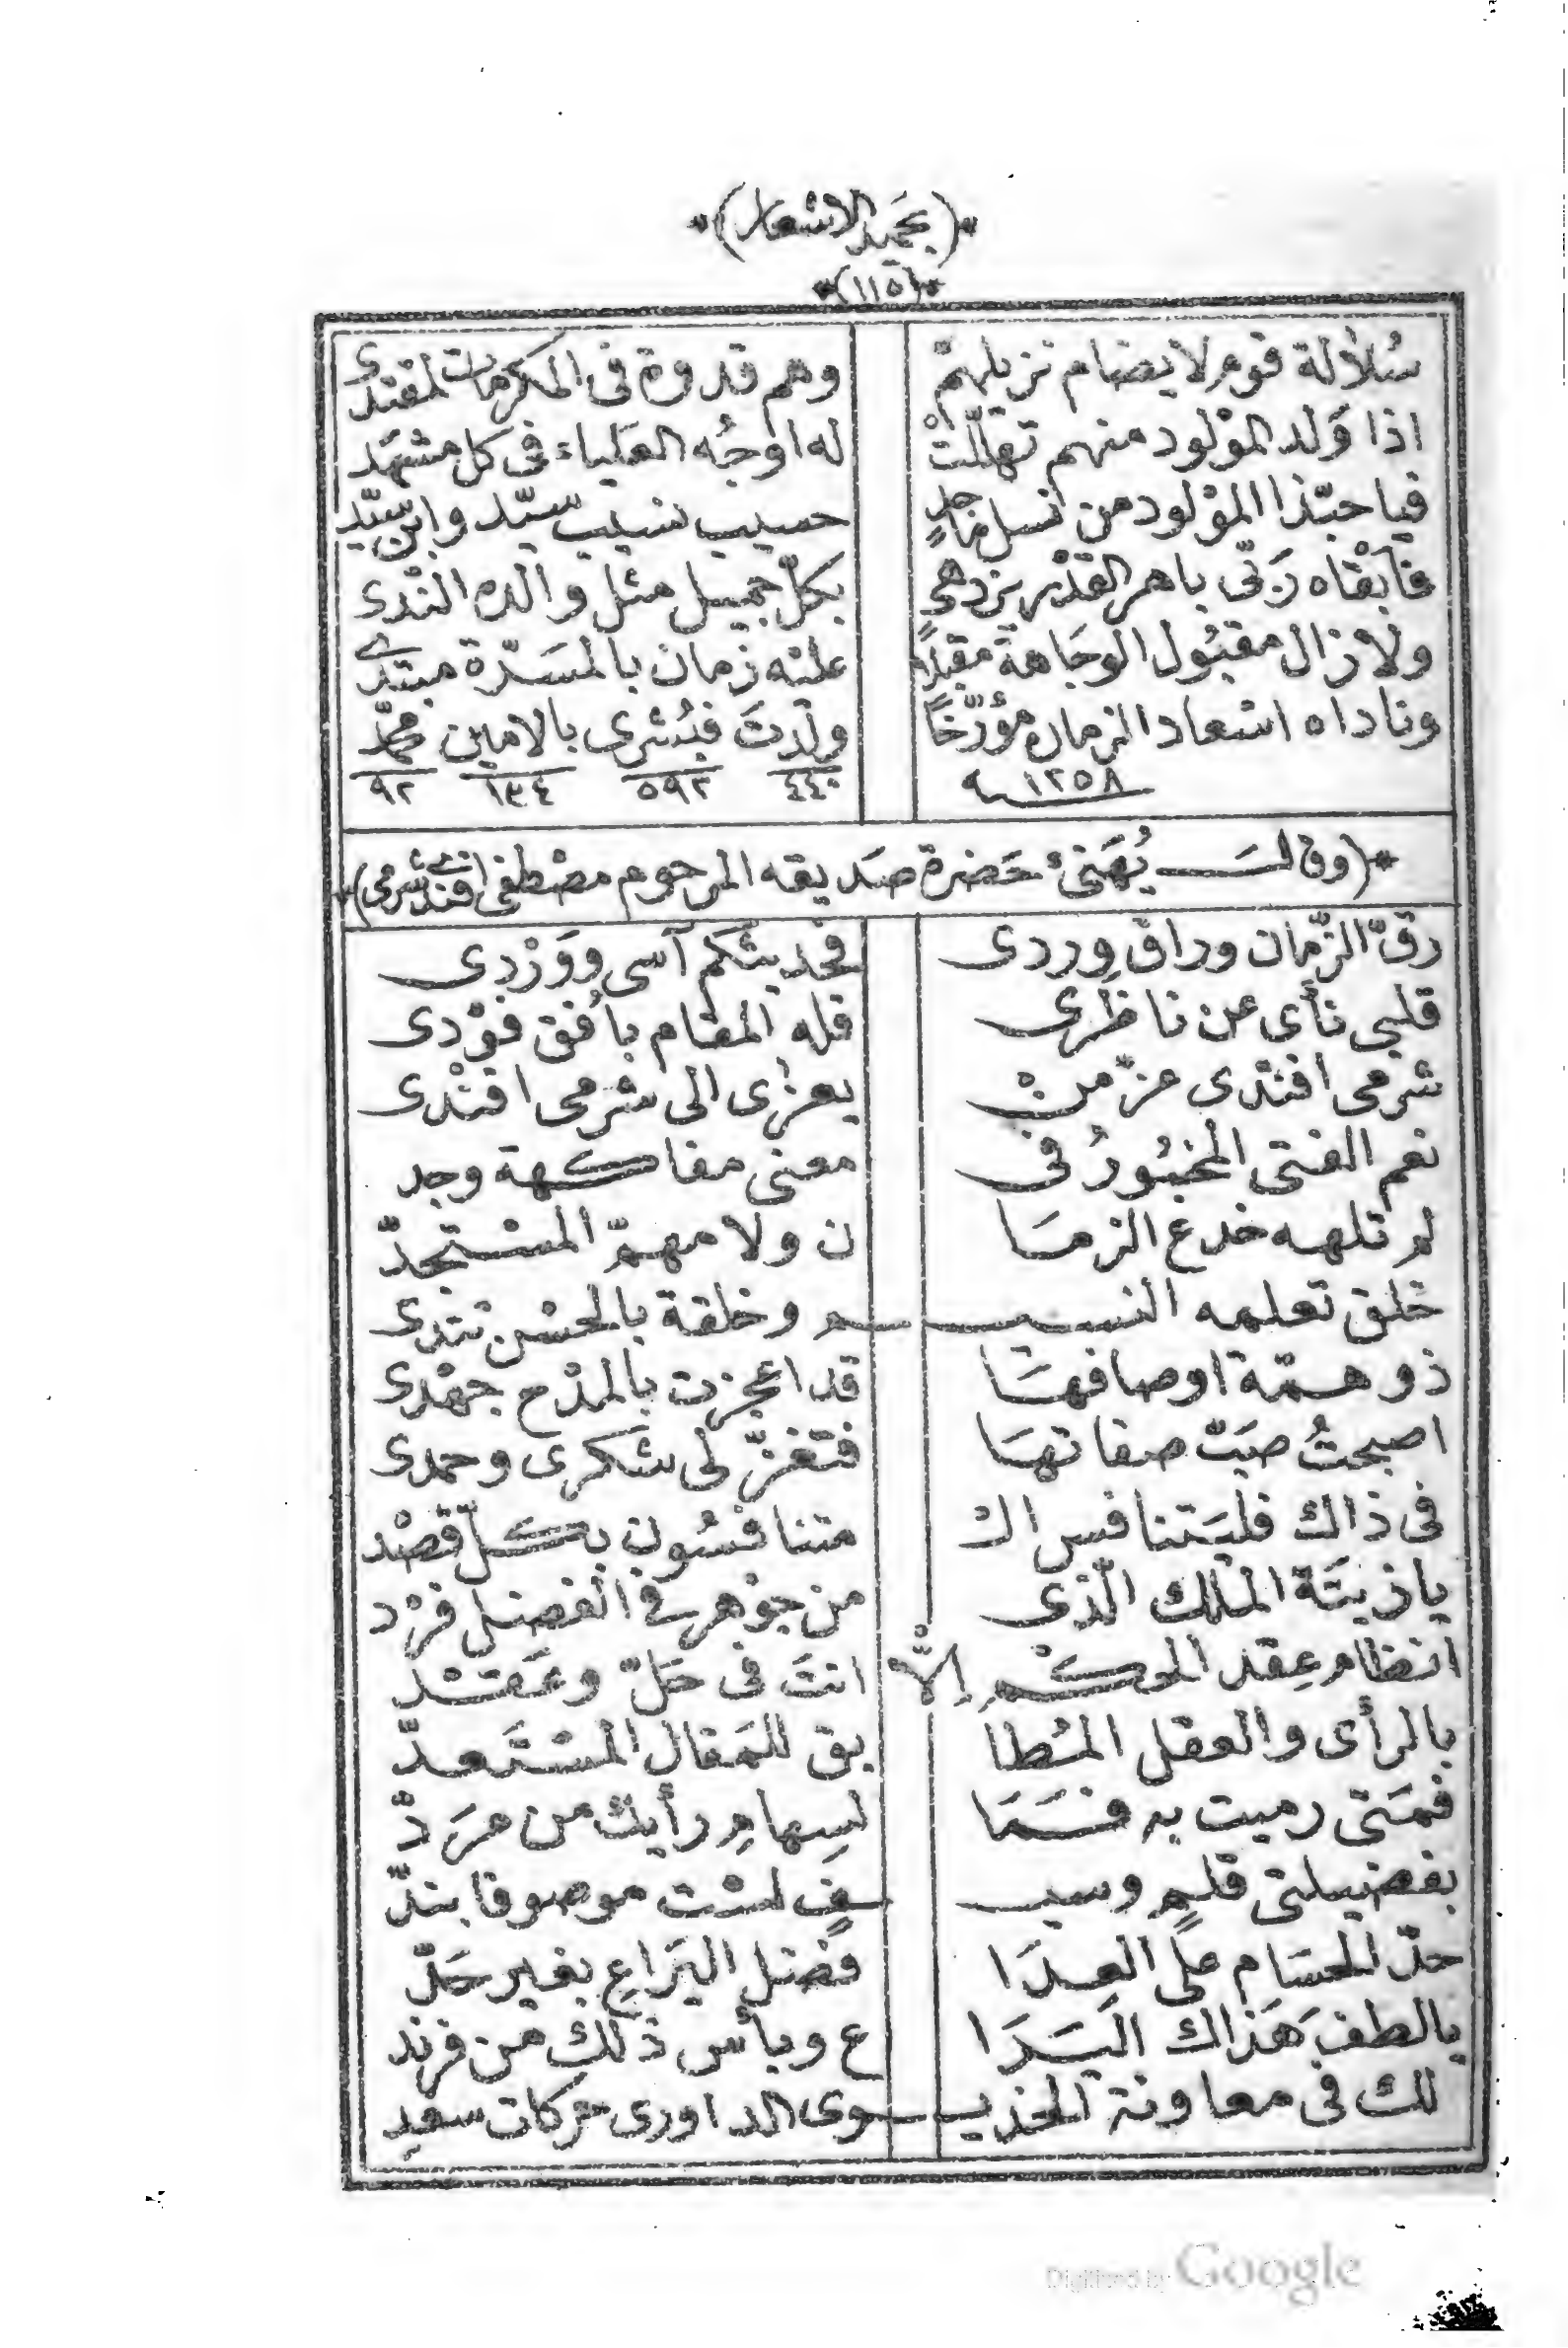 (بحميد الاشعار)
(١١٥)
سُلالة قوم لا يضام نزيلهمْ وهم قدوة فى المكرمات لمقتدى
اذا وُلد المولود منهم تهلّلتْ له اوجُه العلياء فى كل مشهَد
فيا حبّذا المولود من نسل ماجدٍ حسيب نسيب سيّد وابن سيّد
فأبقاه ربّى باهر القدْر يزدهى بكلّ جميل مثل والده النّدى
ولا زال مقبُول الوجَاهة مقبلاً عليْه زمان بالمسَرّة مبتدى
وناداه اسعاد الزمان مؤرّخاً ولدتَ فبُشرى بالامين محمّد
١٢٥٨ ٤٤٠ ٥٩٢ ١٣٤ ٩٢
(وقالـــ يُهَنئ حَضرة صَديقه المرحوم مصْطفى افندى شرمى)
رقّ الزّمان وراق وِردى فحديثكم آسى ووَرْدى
قلبى نأى عن ناظرى فله المقام بأفق فوْدى
شرمى افندى عزّ منْ يعزى الى شرمى افنْدى
نعم الفتى المخبُورُ فى معنى مفاكهة وجد
لم تلهه خدع الزمَا ن ولا مهمّ المسْتجدّ
خَلق تعلمه النسيـــم وخلقة بالحسْن تندى
ذو همّة اوصافهَا قد اعجزت بالمدْح جهْدى
اصبحتُ صَبّ صفاتهَا فتعزّ لى شكرى وحمدى
فى ذاك فليَتنافس الـ متنافسُون بكلّ قصْد
يا زينَة الملك الّذى من جوْهر فى الفضل فرْد
انظام عِقد الحكْمِ إلاّ انتَ فى حَلّ وعَقْد
بالرأى والعقل المُطا بق للمَقال المسْتَعدّ
فمَتى رميت به فمَا لسِهامِ رأيك من مرَدّ
بفضيلتى قلمٍ وسيـ ـفٍ لسْت موصوفا بندّ
حدّ الحسَام على العِدَا فضل اليَراعِ بغير حَدّ
يا لطف هَذاك اليَرَا ع وبأس ذلك من فرند
لك فى معاونة الخديـــوى الداورى حركات سعدِ
Digitized by Google